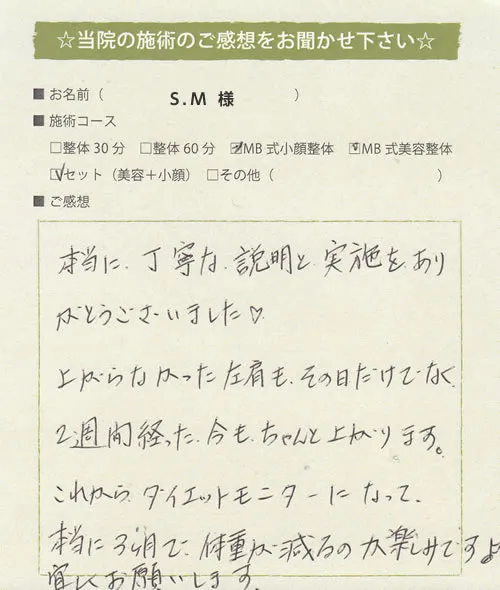 ☆当院の施術のご感想をお聞かせ下さい☆
■お名前( S.M 様 )
■施術コース
□整体30分 □整体60分 ☑MB式小顔整体 ☑MB式美容整体
☑セット(美容+小顔) □その他( )
■ご感想
本当に、丁寧な、説明と、実施を、あり
がとうございました♡
上がらなかった左肩も、その日だけでなく、
2週間経った、今も、ちゃんと上がります。
これから、ダイエットモニターになって、
本当に3ヶ月で、体重が減るのが楽しみですよ
宜しくお願いします。